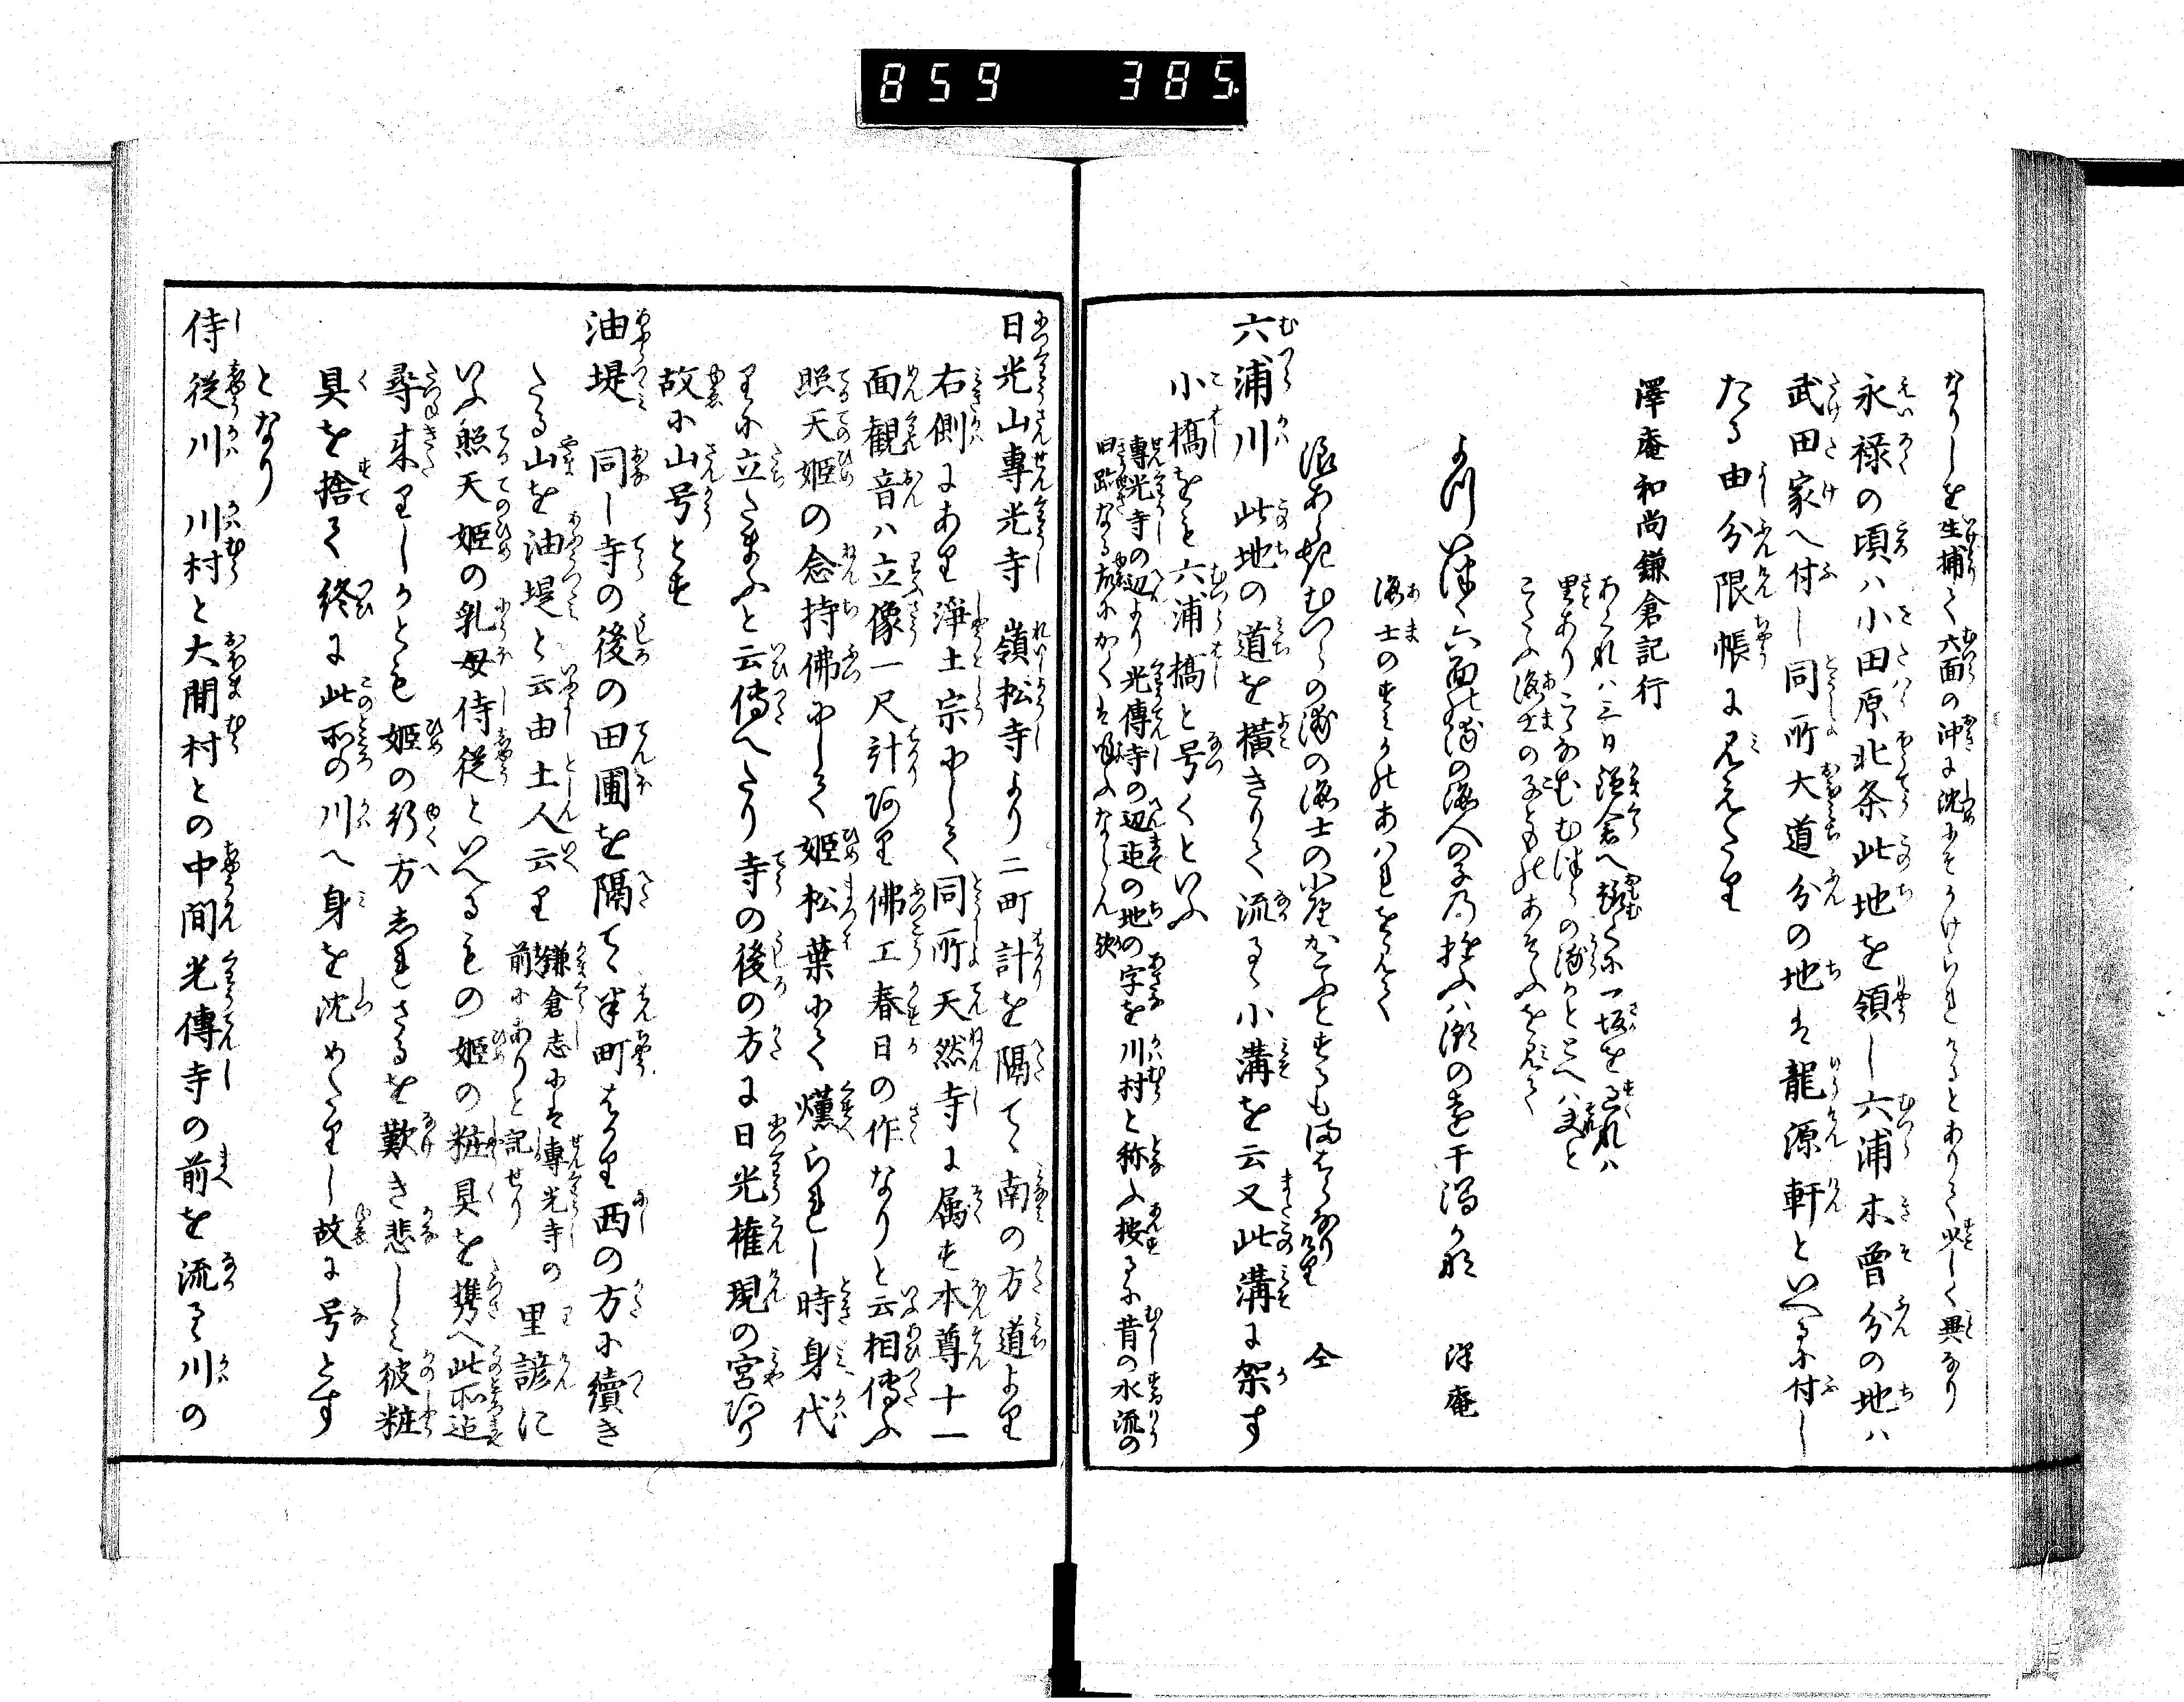 859 385
なりしを生捕て六面の沖に沈にそかけられけるとありて少しく異なり
永禄の頃ハ小田原北条此地を領し六浦木曽分の地ハ
武田家へ付し同所大道分の地は龍源軒といへるに付し
たる由分限帳に見えたり
澤庵和尚鎌倉記行
あくれハ三日鎌倉へ趣くに一坂を越れハ
里あり
海士の子とものあそふを見て
六面の浦の海人の子の 潮の遠干潟かな 澤庵
海士のすみかのあハれを見て
浪あらき むつらの浦の海士の小屋 仝
六浦川 此地の道を横きりて流るゝ小溝を云又此溝に架す
小橋をも六浦橋と号くといふ
専光寺の辺より光傳寺の辺迄の地の字を川村と称ふ按るに昔の水流の
旧跡なる故にかくは唱ふならん歟
日光山專光寺 嶺松寺より二町計を隔てゝ南の方道より
右側にあり淨土宗にして同所天然寺に属す本尊十一
面観音ハ立像一尺計あり佛工春日の作なりと云相傳ふ
照天姫の念持佛にして姫松葉にて燻られし時身代
りに立たまふと云傳へたり寺の後の方に日光権現の宮あり
故に山号とす
油堤 同し寺の後の田圃を隔てゝ半町はかり西の方に續き
たる山を油堤と云由土人云り 鎌倉志には專光寺の前にありと記せり 里諺に
いふ照天姫の乳母侍従といへるもの姫の粧具を携へ此所迄
尋来りしかとも姫の行方しれさるを歎き悲しみ彼粧
具を捨て終に此所の川へ身を沈めたりし故に号とす
となり
侍従川 川村と大間村との中間光傳寺の前を流るゝ川の